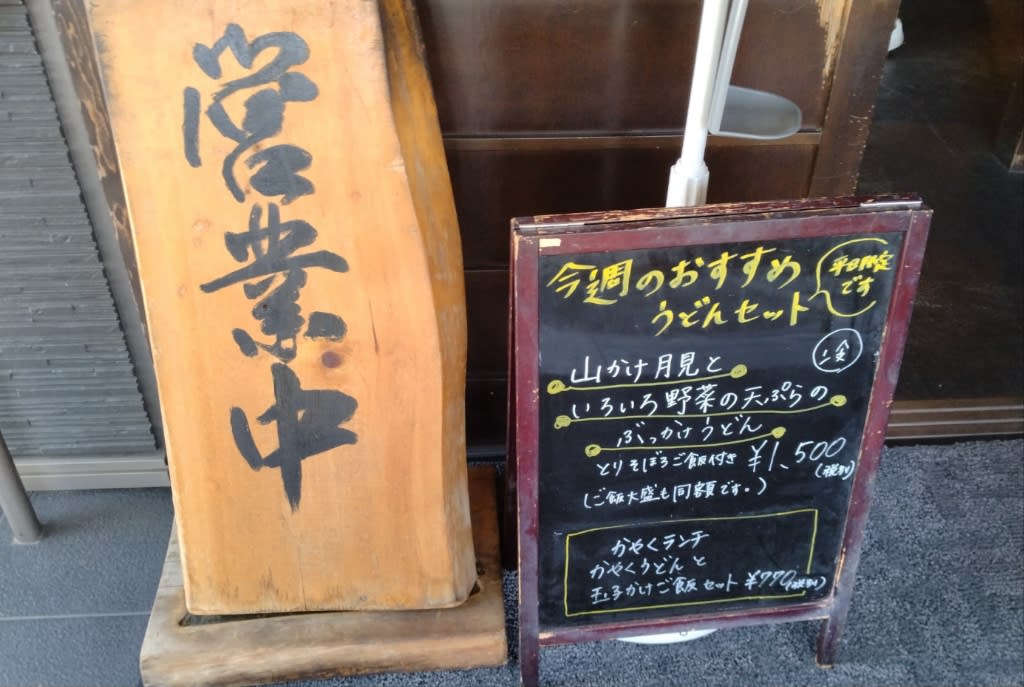 営業中
今週のおすすめ
うどんセット
平日限定
です
冷
山かけ月見と
いろいろ野菜の天ぷらの
ぶっかけうどん
とりそぼろご飯付き ¥1,500
(税別)
(ご飯大盛も同額です。)
かやくランチ
かやくうどんと
玉子かけご飯セット ¥770(税別)